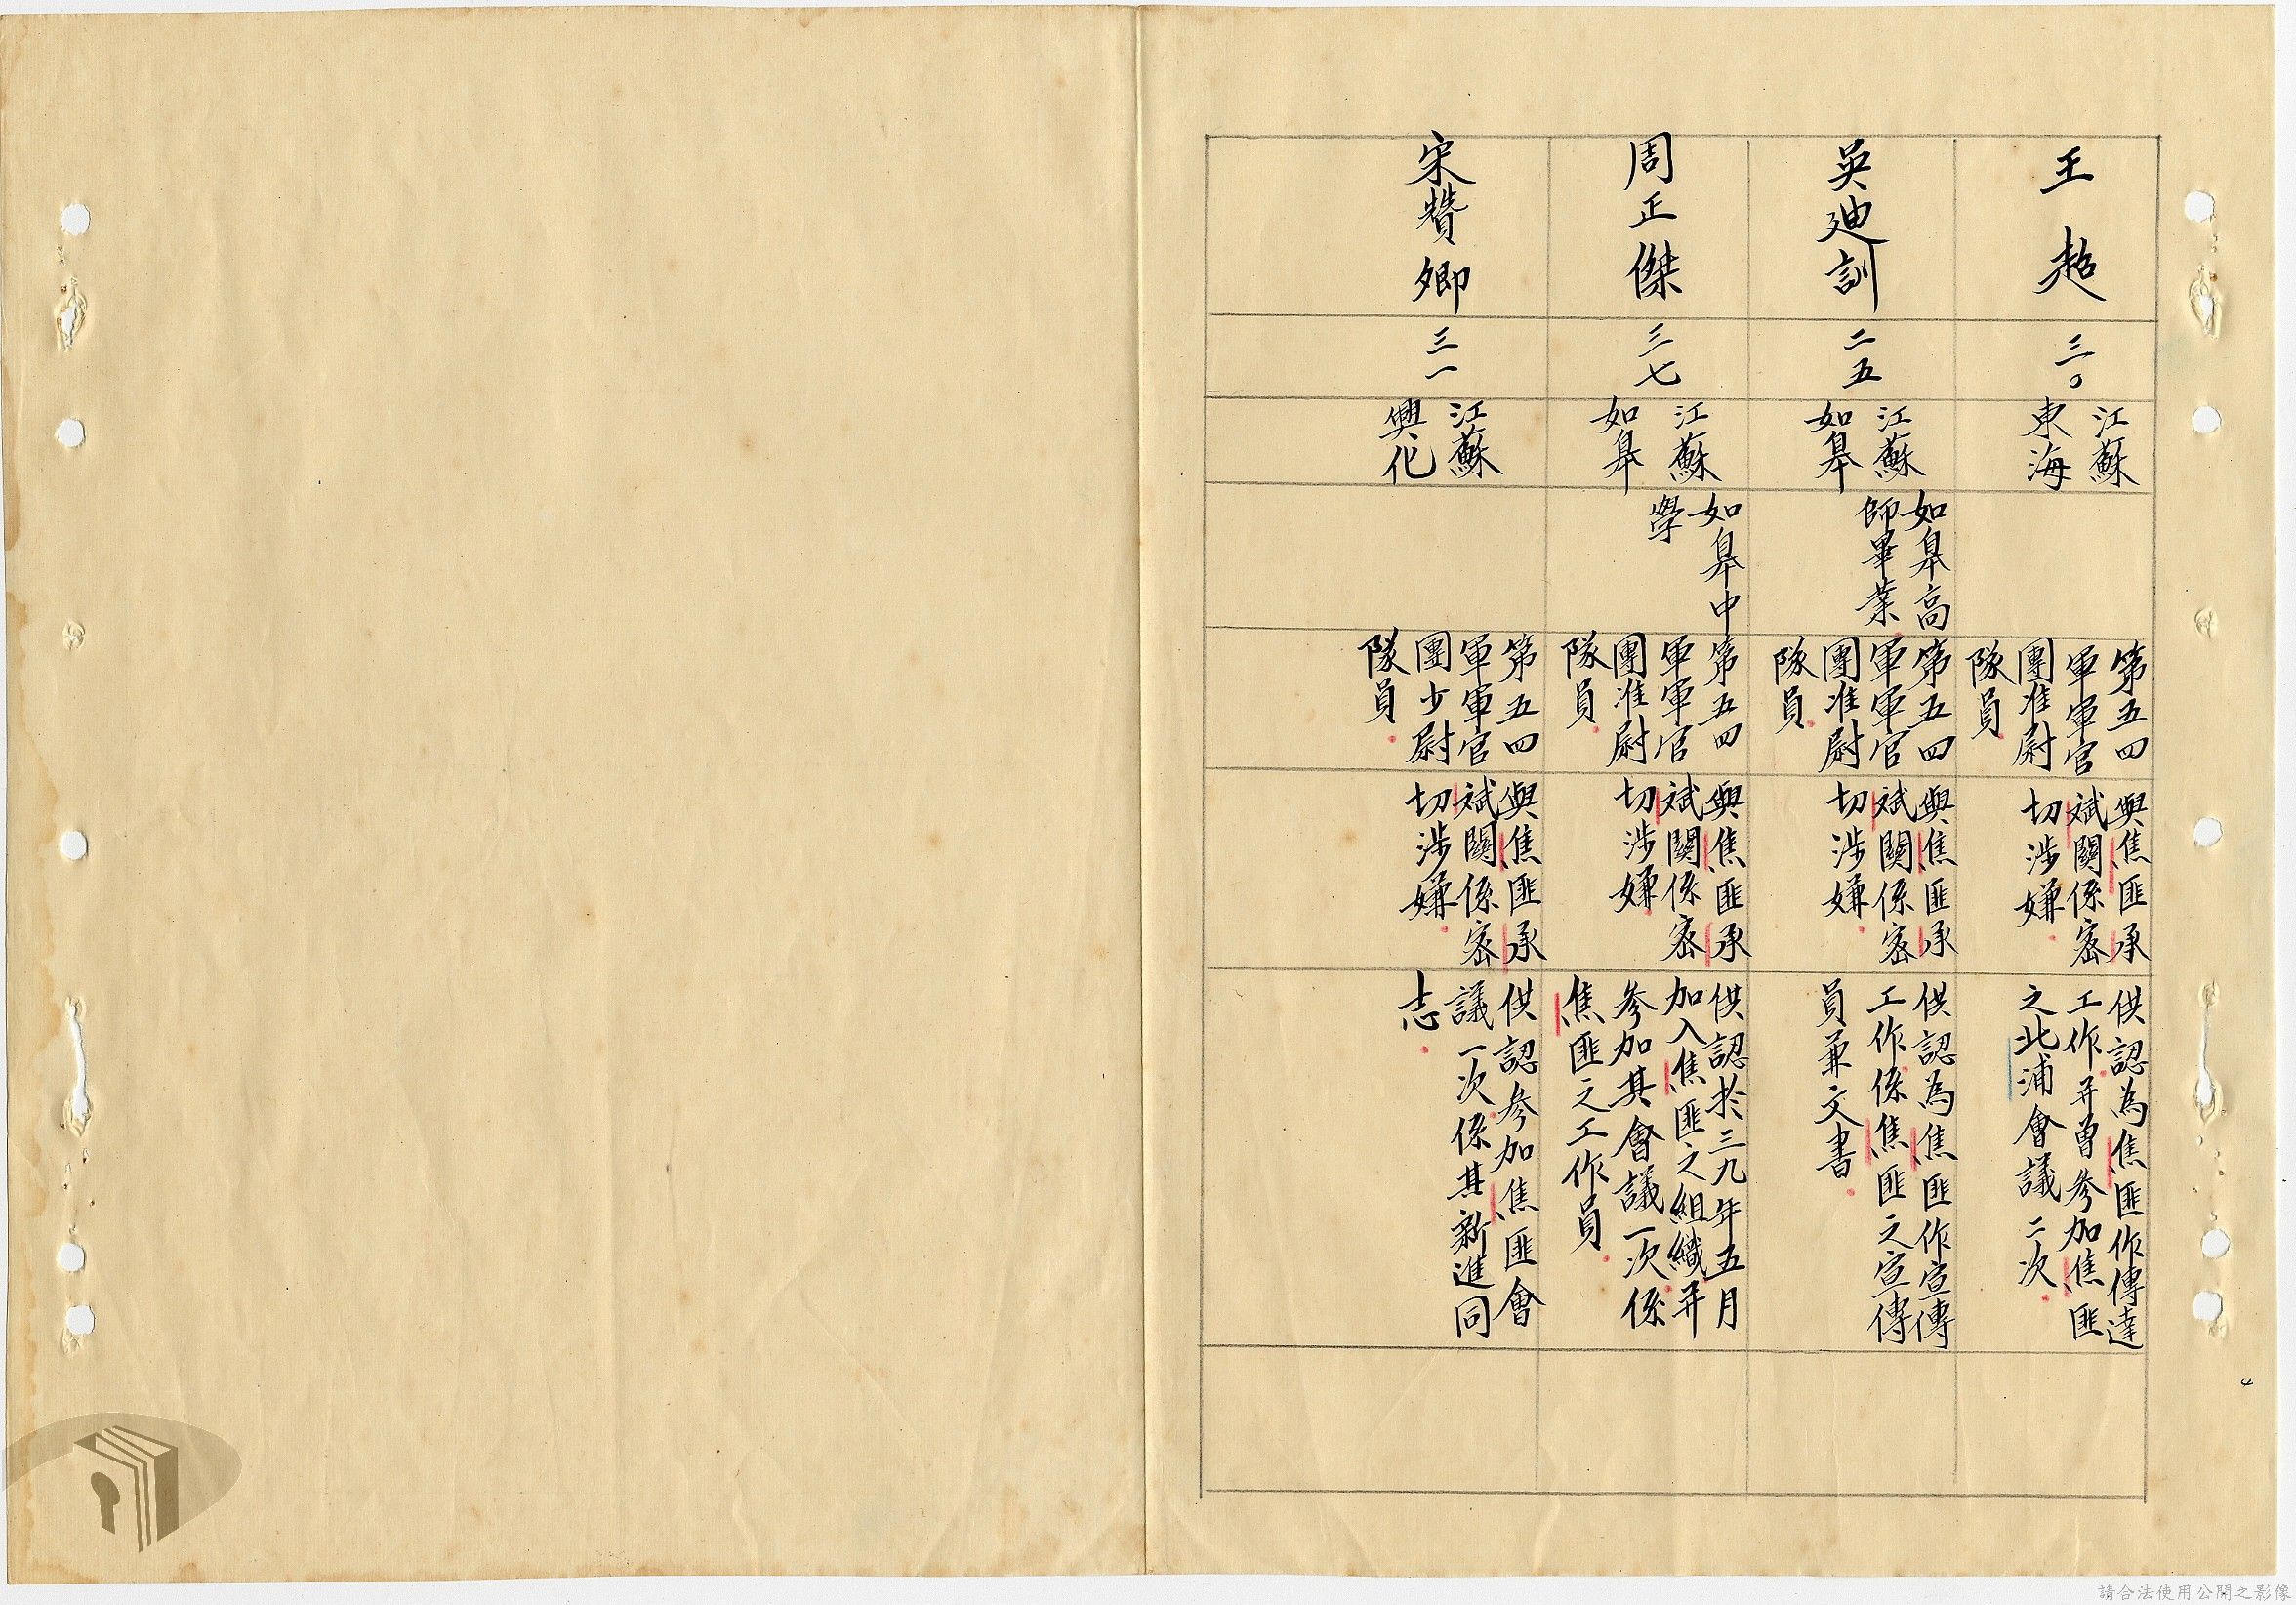 王超
三〇
江蘇
東海
第五四
軍軍官
團准尉
隊員
與焦匪承
斌關係密
切涉嫌
供認為焦匪作傳達
工作并曾參加焦匪
之北浦會議二次
吳廸訓
二五
江蘇
如皋
如皋高
師畢業
第五四
軍軍官
團准尉
隊員
與焦匪承
斌關係密
切涉嫌
供認為焦匪作宣傳
工作係焦匪之宣傳
員兼文書
周正傑
三七
江蘇
如皋
如皋中
學
第五四
軍軍官
團准尉
隊員
與焦匪承
斌關係密
切涉嫌
供認於三九年五月
加入焦匪之組織并
參加其會議一次係
焦匪之工作員
宋贊卿
三一
江蘇
興化
第五四
軍軍官
團少尉
隊員
與焦匪承
斌關係密
切涉嫌
供認參加焦匪會
議一次係其新進同
志
4
請合法使用公開之影像